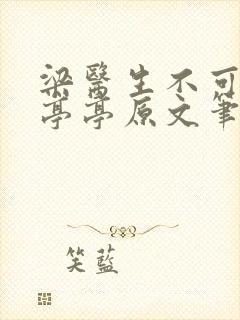 梁醫生不可
亭亭原文筆
笑藍